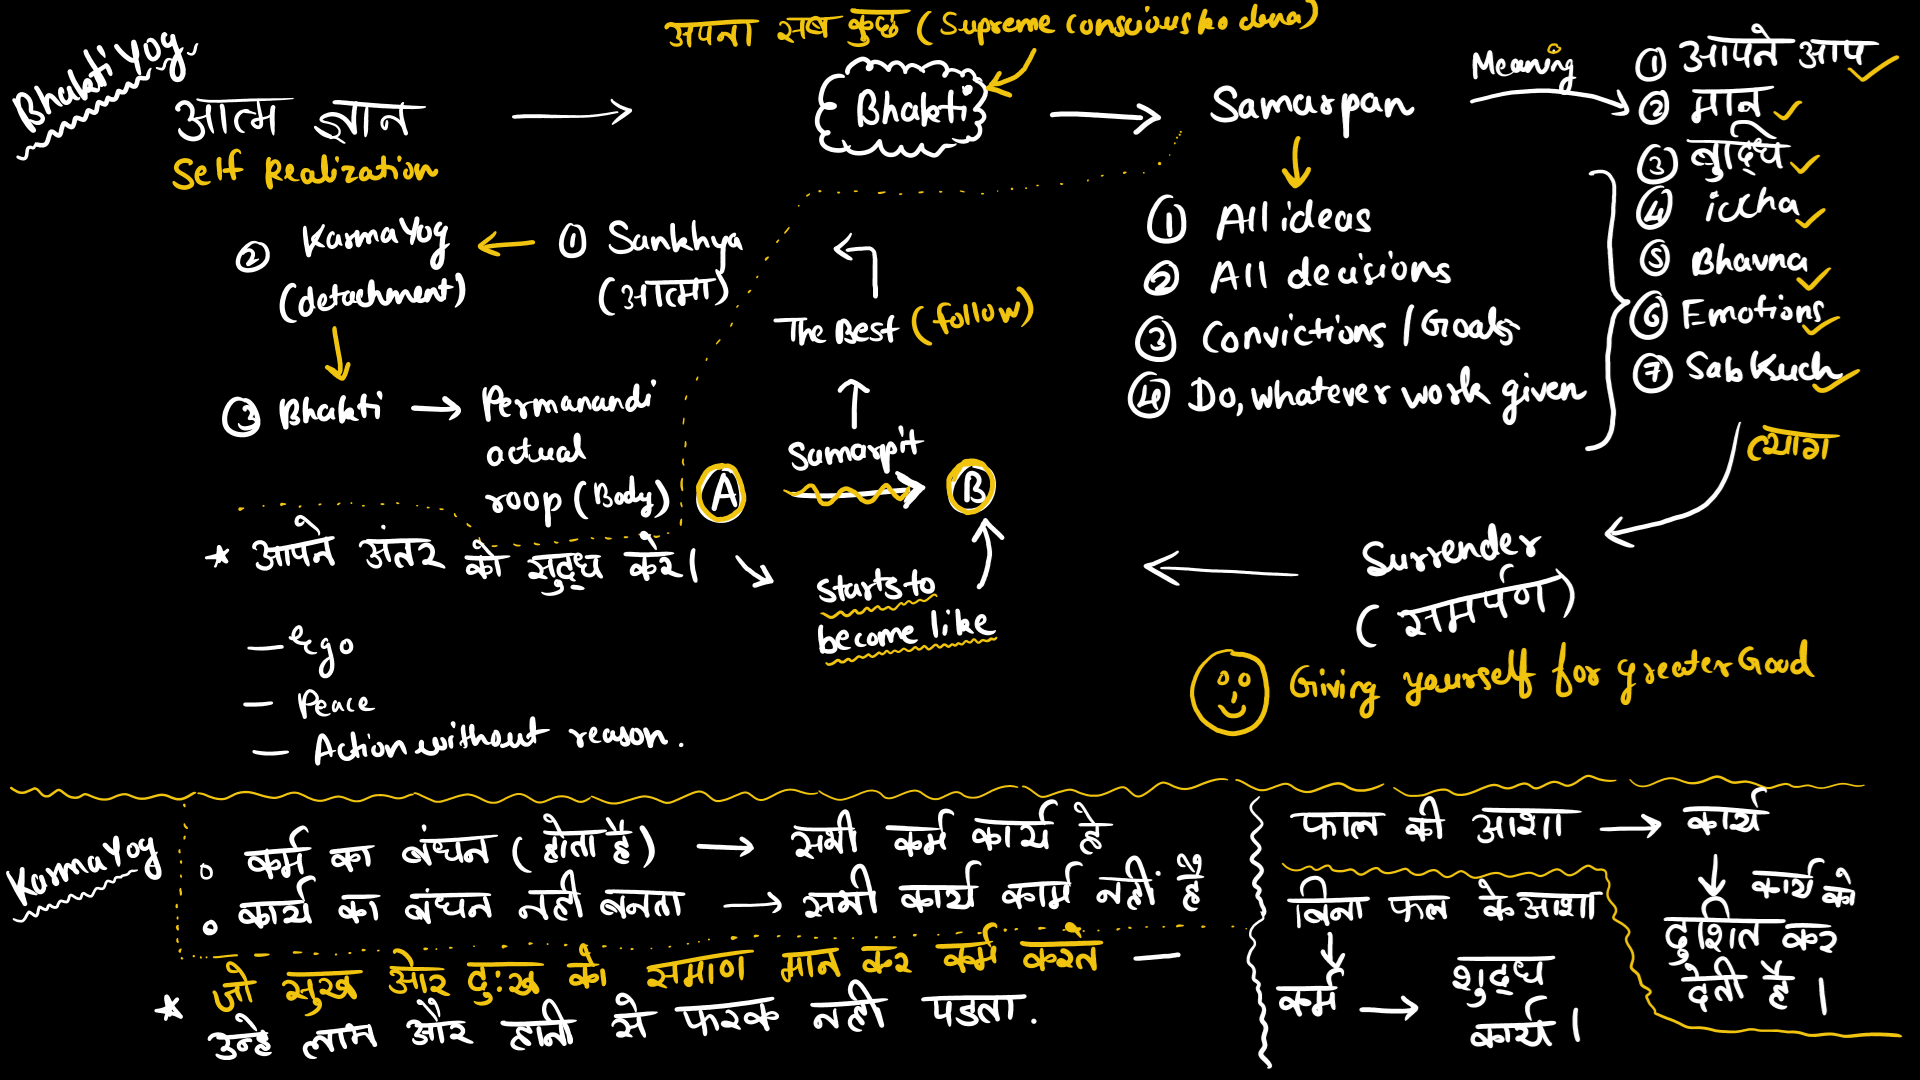 Bhakti Yog
अपना सब कुछ (Supreme conscious ko dena)
आत्म ज्ञान
Self Realization
Bhakti
Samarpan
Meaning
① आपने आप
② मान
③ बुद्धि
④ iccha
⑤ Bhavna
⑥ Emotions
⑦ Sab Kuch
① All ideas
② All decisions
③ Convictions / Goals
④ Do, whatever work given
① Sankhya
(आत्मा)
② Karma Yog
(detachment)
③ Bhakti
Permanandi
actual
roop (Body)
The Best (follow)
Samarpit
A
B
starts to
become like
त्याग
Surrender
(समर्पण)
Giving yourself for greater Good
* आपने अंतर को सुद्ध करे।
— Ego
— Peace
— Action without reason.
Karma Yog
• कर्म का बंधन (होता है) → सभी कर्म कार्य हे
• कार्य का बंधन नही बनता → सभी कार्य कार्म नहीं है
* जो सुख ओर दुःख को समाण मान कर कर्म करते —
उन्हे लाभ और हानी से फरक नही पडता.
फाल की आशा → कार्य
कार्य को
दुशित कर
देती है।
बिना फल के आशा
कर्म → शुद्ध
कार्य।